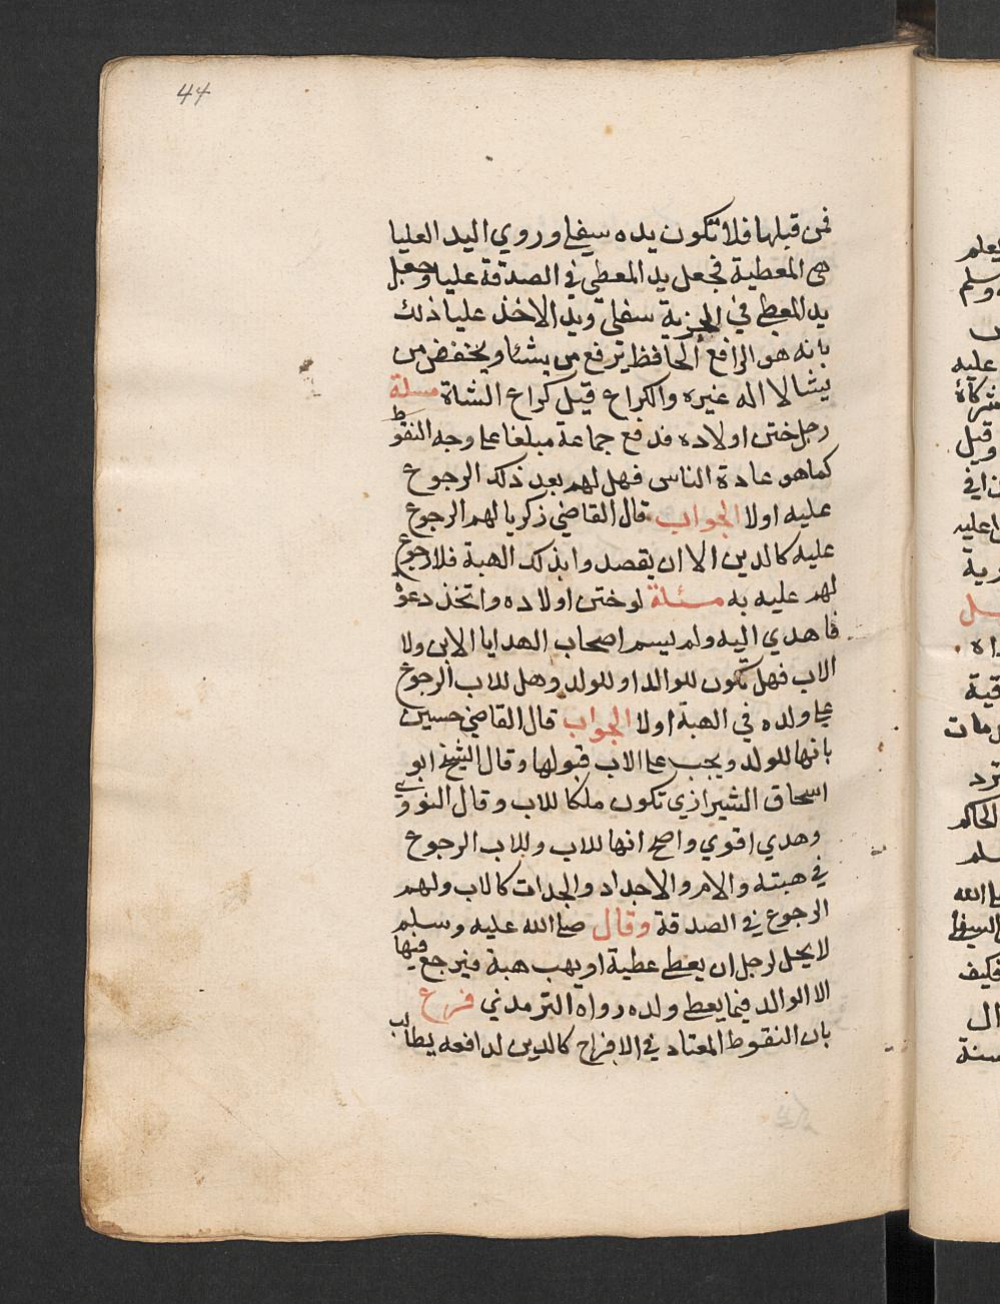 44
فمن قبلها فلا تكون يده سفلي وروي اليد العليا
هي المعطية فجعل يد المعطي في الصدقة عليا وجعل
يد المعطي في الجزية سفلي ويد الاخذ عليا ذلك
بانه هو الرافع الحافظ يرفع من يشا ويخفض من
يشا لا اله غيره والكراع قيل كراع الشاة مسلة
رجل ختن اولاده فدفع جماعة مبلغا علي وجه النقوط
كما هو عادة الناس فهل لهم بعد ذلك الرجوع
عليه اولا الجواب قال القاضي زكريا لهم الرجوع
عليه كالدين الا ان يقصدوا بذلك الهبة فلا رجوع
لهم عليه به مسئلة لو ختن اولاده واتخذ دعوة
فاهدي اليه ولم يسم اصحاب الهدايا الابن ولا
الاب فهل تكون للوالد او للولد وهل للاب الرجوع
علي ولده في الهبة اولا الجواب قال القاضي حسين
بانها للولد ويجب علي الاب قبولها وقال الشيخ ابو
اسحاق الشيرازي تكون ملكا للاب وقال النووي
وهدي اقوي واصح انها للاب وللاب الرجوع
في هبته والام والاجداد والجدات كالاب ولهم
الرجوع في الصدقة وقال صلي الله عليه وسلم
لا يحل لرجل ان يعطي عطية او يهب هبة فيرجع فيها
الا الوالد فيما يعطي ولده رواه الترمذي فرع
بان النقوط المعتاد في الافراح كالدين لدافعه يطالب